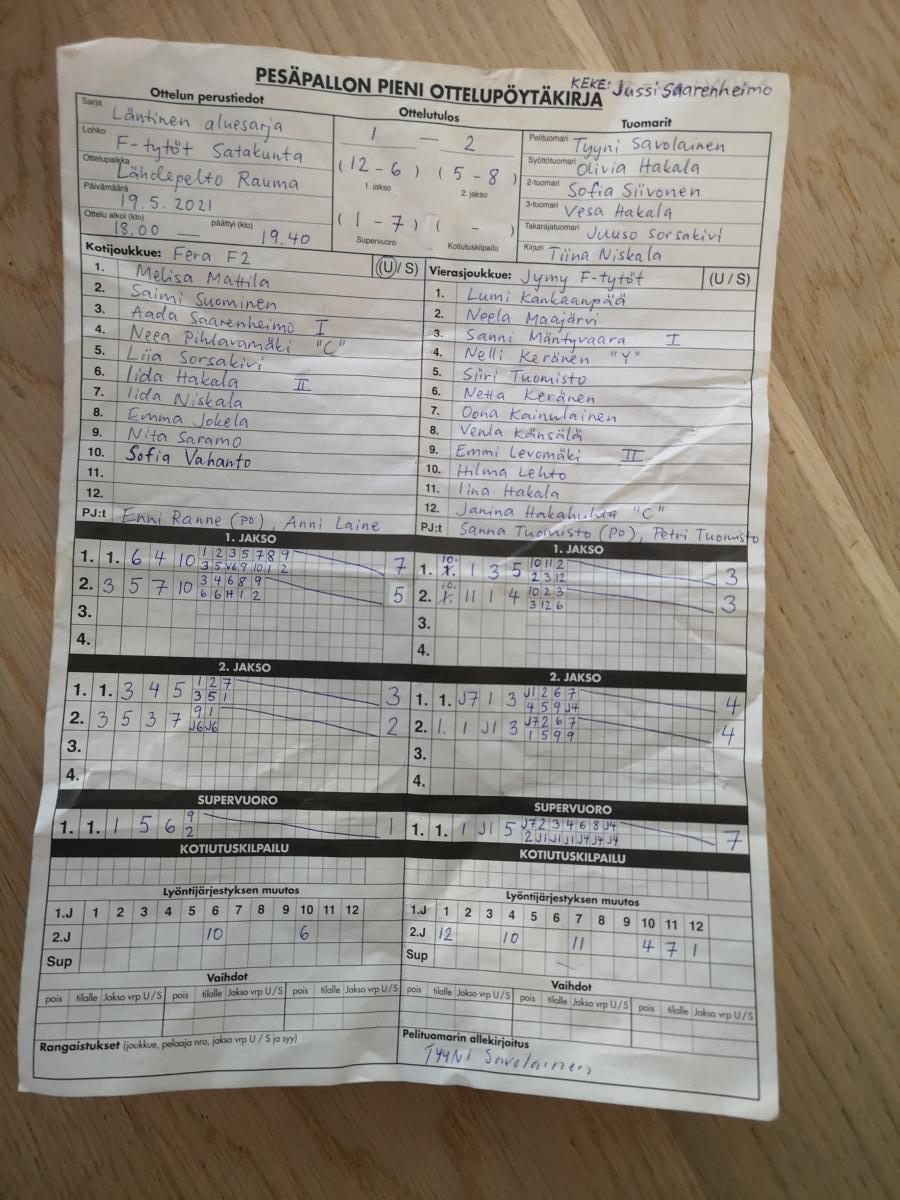 KEKE: Jussi Saarenheimo
PESÄPALLON PIENI OTTELUPÖYTÄKIRJA
Ottelun perustiedot
Sarja Läntinen aluesarja
Lohko F-tytöt Satakunta
Ottelupaikka Lähdepelto Rauma
Päivämäärä 19.5.2021
Ottelu alkoi (klo) 18.00 – päättyi (klo) 19.40
Ottelutulos
1 — 2
(12 - 6) (5 - 8)
1. jakso 2. jakso
(1 - 7) ( - )
Supervuoro Kotiutuskilpailu
Tuomarit
Pelituomari Tyyni Savolainen
Syöttötuomari Olivia Hakala
2-tuomari Sofia Siivonen
3-tuomari Vesa Hakala
Takarajatuomari Juuso Sorsakivi
Kirjuri Tiina Niskala
Kotijoukkue: Fera F2 (U / S)
1. Melisa Mattila
2. Saimi Suominen
3. Aada Saarenheimo I
4. Neea Pihlavamäki "C"
5. Liia Sorsakivi
6. Iida Hakala II
7. Iida Niskala
8. Emma Jokela
9. Nita Saramo
10. Sofia Vahanto
11.
12.
PJ:t Enni Ranne (PO), Anni Laine
Vierasjoukkue: Jymy F-tytöt (U / S)
1. Lumi Kankaanpää
2. Neela Maajärvi
3. Sanni Mäntyvaara I
4. Nelli Keränen "Y"
5. Siiri Tuomisto
6. Netta Keränen
7. Oona Kainulainen
8. Venla Känsälä
9. Emmi Levomäki II
10. Hilma Lehto
11. Iina Hakala
12. Janina Hakahuhta "C"
PJ:t Sanna Tuomisto (PO), Petri Tuomisto
1. JAKSO
1. 1. 6 4 10 1 2 3 5 7 8 9 7
3 5 V6 9 10 1 2
2. 3 5 7 10 3 4 6 8 9 5
6 6 H 1 2
3.
4.
1. JAKSO
1. 10. 1 3 5 10 11 2 3
2 3 12
2. 11 1 4 10 2 3 3
3 12 6
3.
4.
2. JAKSO
1. 1. 3 4 5 1 2 7 3
3 5 1
2. 3 5 3 7 9 1 2
J6 J6
3.
4.
2. JAKSO
1. 1. J7 1 3 J1 2 6 7 4
4 5 9 J4
2. 1. 1 J1 3 J7 2 6 7 4
1 5 9 9
3.
4.
SUPERVUORO
1. 1. 1 5 6 9 1
2
SUPERVUORO
1. 1. 1 J1 5 J7 2 3 4 6 8 J4 7
2 J1 J1 J1 J4 J4 J4
KOTIUTUSKILPAILU
KOTIUTUSKILPAILU
Lyöntijärjestyksen muutos
1.J 1 2 3 4 5 6 7 8 9 10 11 12
2.J 10 6
Sup
Lyöntijärjestyksen muutos
1.J 1 2 3 4 5 6 7 8 9 10 11 12
2.J 12 10 11 4 7 1
Sup
Vaihdot
pois tilalle Jakso vrp U / S pois tilalle Jakso vrp U / S pois tilalle Jakso vrp U / S
Vaihdot
pois tilalle Jakso vrp U / S pois tilalle Jakso vrp U / S pois tilalle Jakso vrp U / S
Rangaistukset (joukkue, pelaaja nro, jakso vrp U / S ja syy)
Pelituomarin allekirjoitus
TYYNI Savolainen